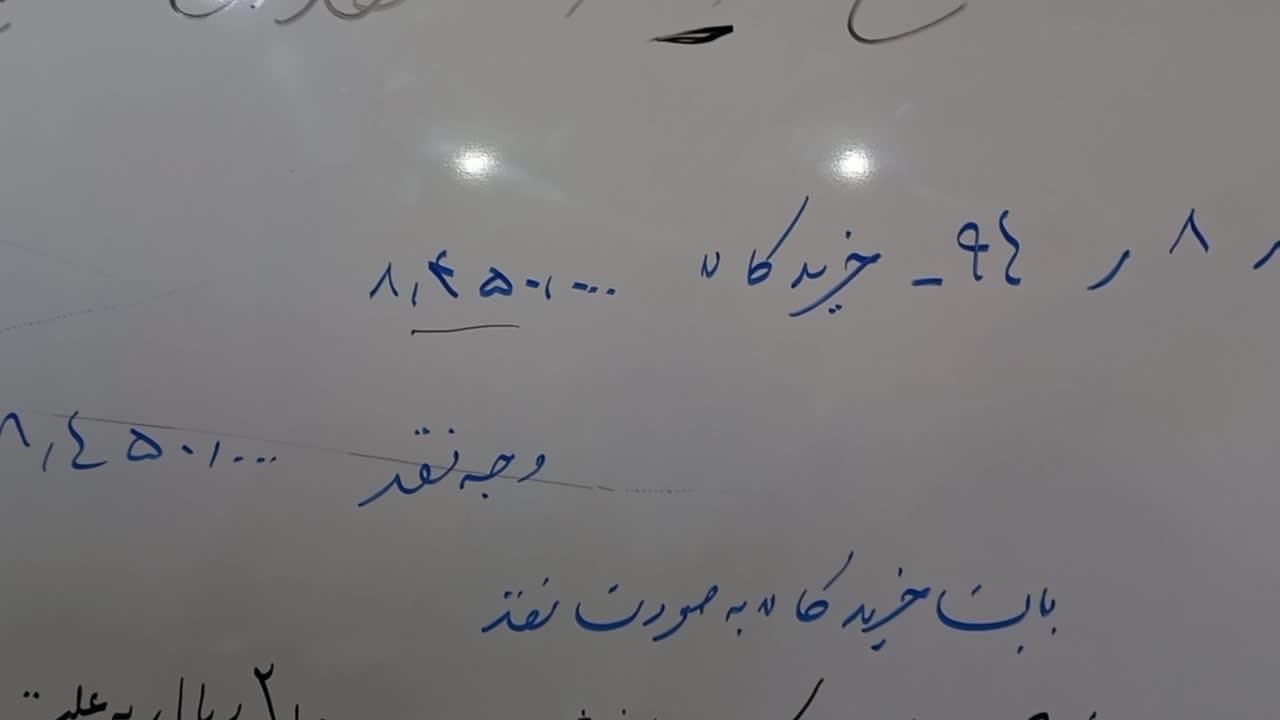 ۸ ر ۹۴ - خرید کالا ۸,۴۵۰,۰۰۰
وجه نقد ۸,۴۵۰,۰۰۰
بابت خرید کالا به صورت نقد
ریال به علت